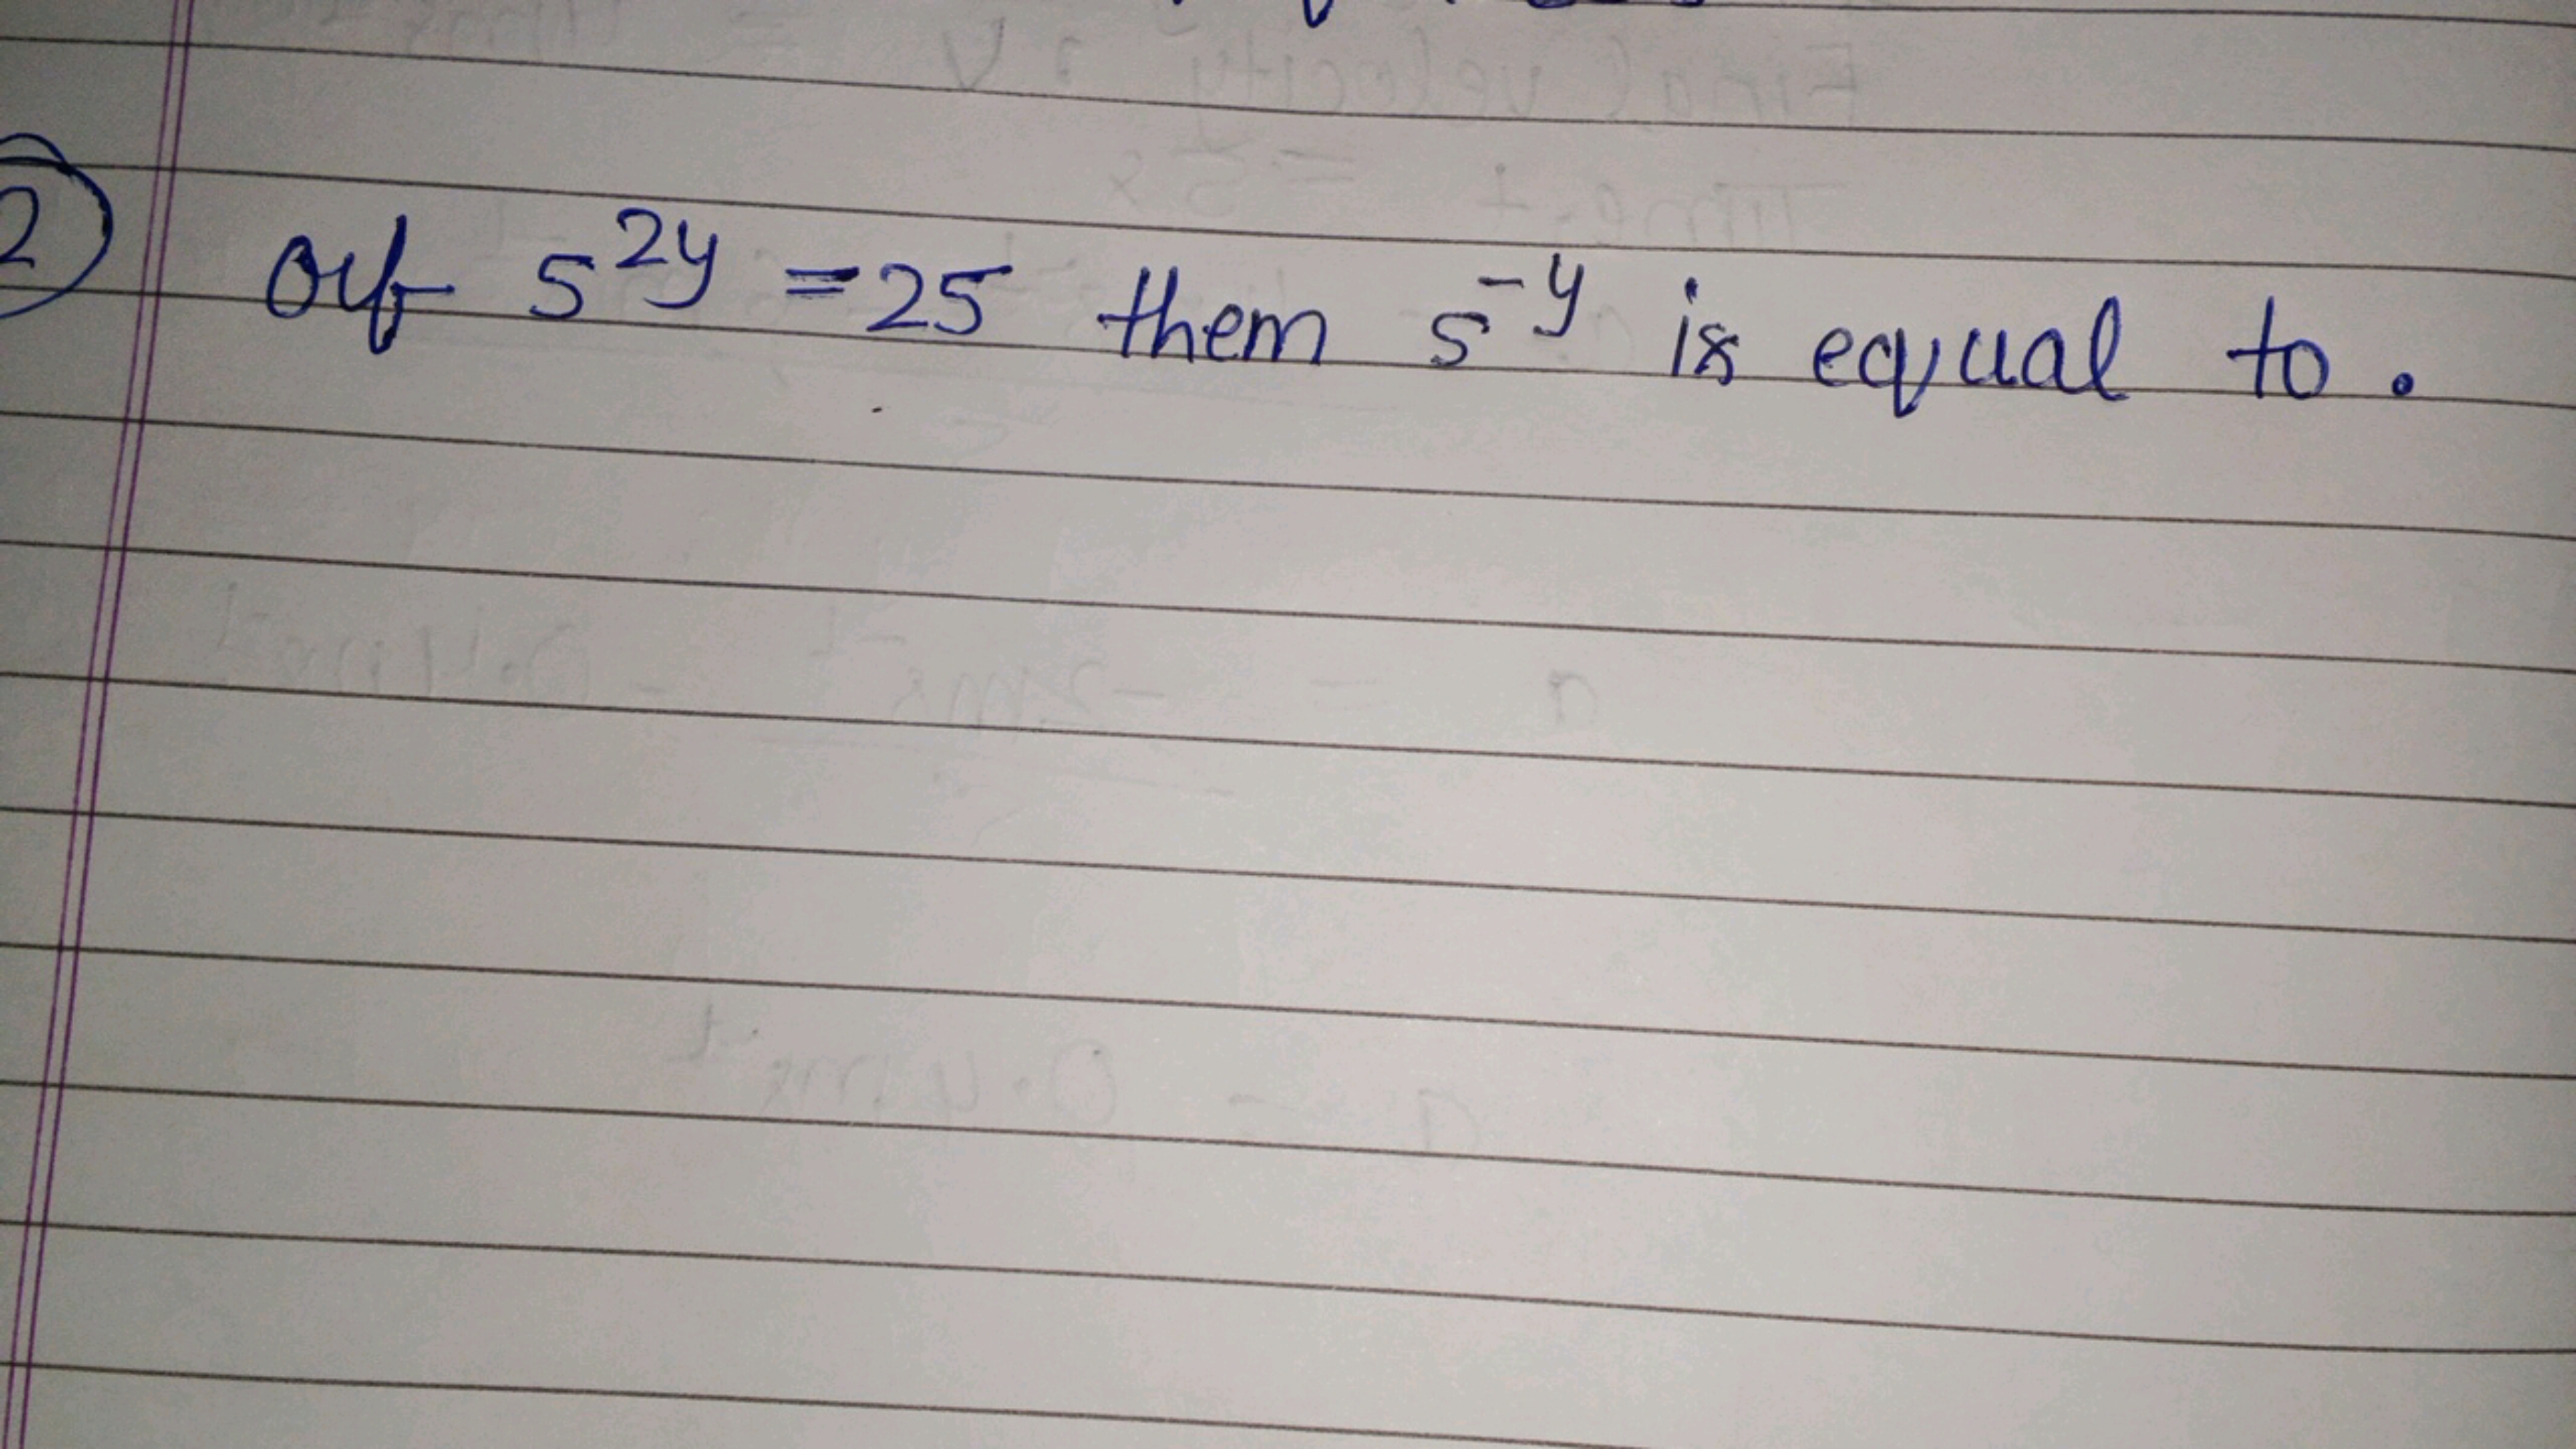 2 If 5^2y = 25 them 5^-y is equal to.